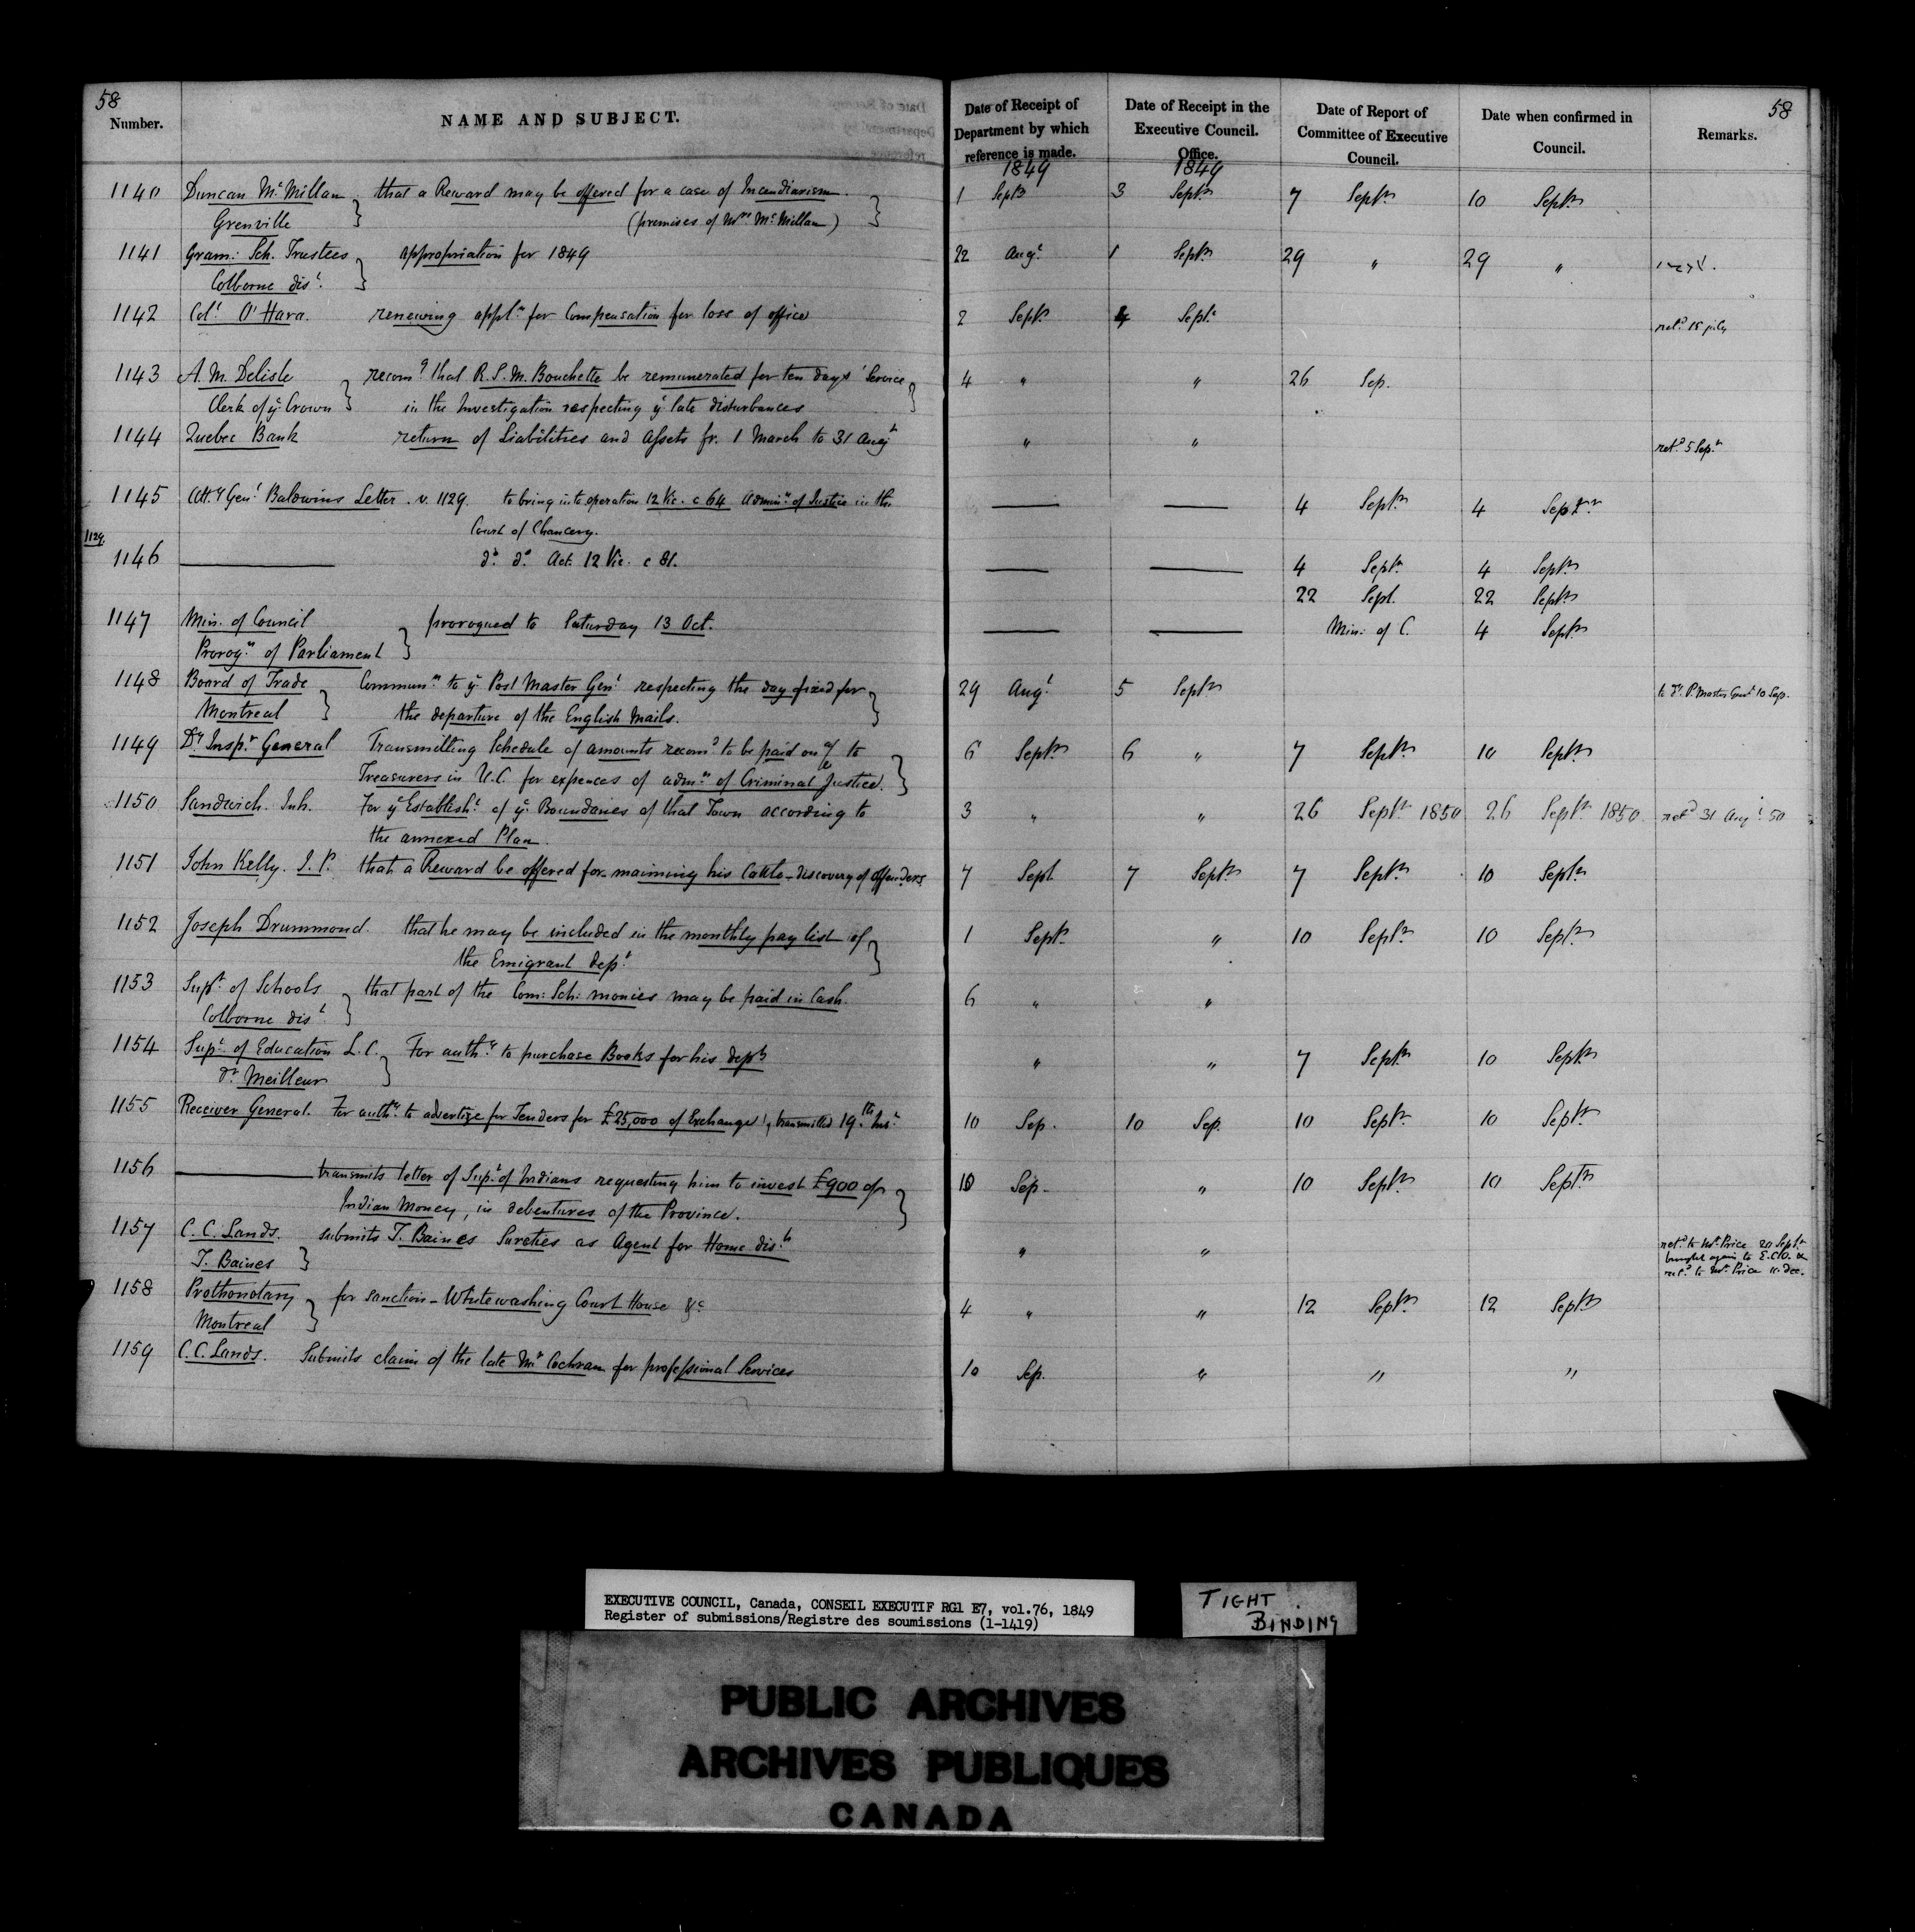 58
Number.
NAME AND SUBJECT.
Date of Receipt of
Department by which
reference is made.
1849
Date of Receipt in the
Executive Council.
Office.
1849
Date of Report of
Committee of Executive
Council.
Date when confirmed in
Council.
58
Remarks.
1140 Duncan McMillan that a Reward may be offered for a case of Incendiarism. 1 Septr 3 Septr 7 Septr 10 Septr
Grenville (premises of Mrs McMillan)
1141 Gram: Sch. Trustees appropriation for 1849 22 Augt 1 Septr 29 " 29 "
Colborne dist.
1142 Col. O'Hara. renewing appln for Compensation for loss of office 2 Septr 4 Septr retd 18 july
1143 A. M. Delisle recomg that R. S. M. Bouchette be remunerated for ten days' Service 4 " " 26 Sep.
Clerk of ye Crown in the Investigation respecting ye late disturbances
1144 Quebec Bank return of Liabilities and Assets fr. 1 March to 31 Augt " " retd 5 Sepr
1145 Atty Genl Baldwins Letter. v. 1129. to bring into operation 12 Vic. c 64 Adminn of Justice in the 4 Septr 4 Septr
Court of Chancery.
1129.
1146 do do Act. 12 Vic. c 81. 4 Septr 4 Septr
22 Sept. 22 Septr
1147 Min. of Council prorogued to Saturday 13 Oct. Min: of C. 4 Septr
Prorogn of Parliament
1148 Board of Trade Communn to ye Post Master Genl respecting the day fixed for 29 Augt 5 Septr to Dy P. Master Genl 10 Sep.
Montreal the departure of the English Mails.
1149 Dy Inspr General Transmitting Schedule of amounts recomd to be paid on a/c to 6 Septr 6 " 7 Septr 10 Septr
Treasurers in U.C. for expences of admn of Criminal Justice.
1150 Sandwich. Inh. For ye Establisht of ye Boundaries of that Town according to 3 " " 26 Septr 1850 26 Septr 1850. retd 31 Augt 50
the annexed Plan.
1151 John Kelly. J. P. that a Reward be offered for maiming his Cattle - discovery of offenders 7 Sept 7 Septr 7 Septr 10 Septr
1152 Joseph Drummond. that he may be included in the monthly pay list of 1 Septr " 10 Septr 10 Septr
the Emigrant Dept
1153 Supt of Schools that part of the Com: Sch: monies may be paid in Cash. 6 " "
Colborne dist.
1154 Supt of Education L.C. For authy to purchase Books for his dept " " 7 Septr 10 Septr
Dr Meilleur
1155 Receiver General. For authy to advertize for Tenders for £25,000 of Exchange, transmitted 19th Inst 10 Sep. 10 Sep. 10 Septr 10 Septr
1156 transmits letter of Supt of Indians requesting him to invest £900 of 10 Sep. " 10 Septr 10 Septr
Indian Money, in debentures of the Province.
1157 C. C. Lands. submits T. Baines Sureties as Agent for Home dist. " " retd to Mr Price 20 Septr
T. Baines brought again to E.C.O. &
retd to Mr Price 11 Dec.
1158 Prothonotary for sanction - Whitewashing Court House &c 4 " " 12 Septr 12 Septr
Montreal
1159 C.C. Lands. Submits claim of the late Mr Cochran for professional Services 10 Sep. " " "
EXECUTIVE COUNCIL, Canada, CONSEIL EXECUTIF RG1 E7, vol.76, 1849
Register of submissions/Registre des soumissions (1-1419)
TIGHT
BINDING
PUBLIC ARCHIVES
ARCHIVES PUBLIQUES
CANADA